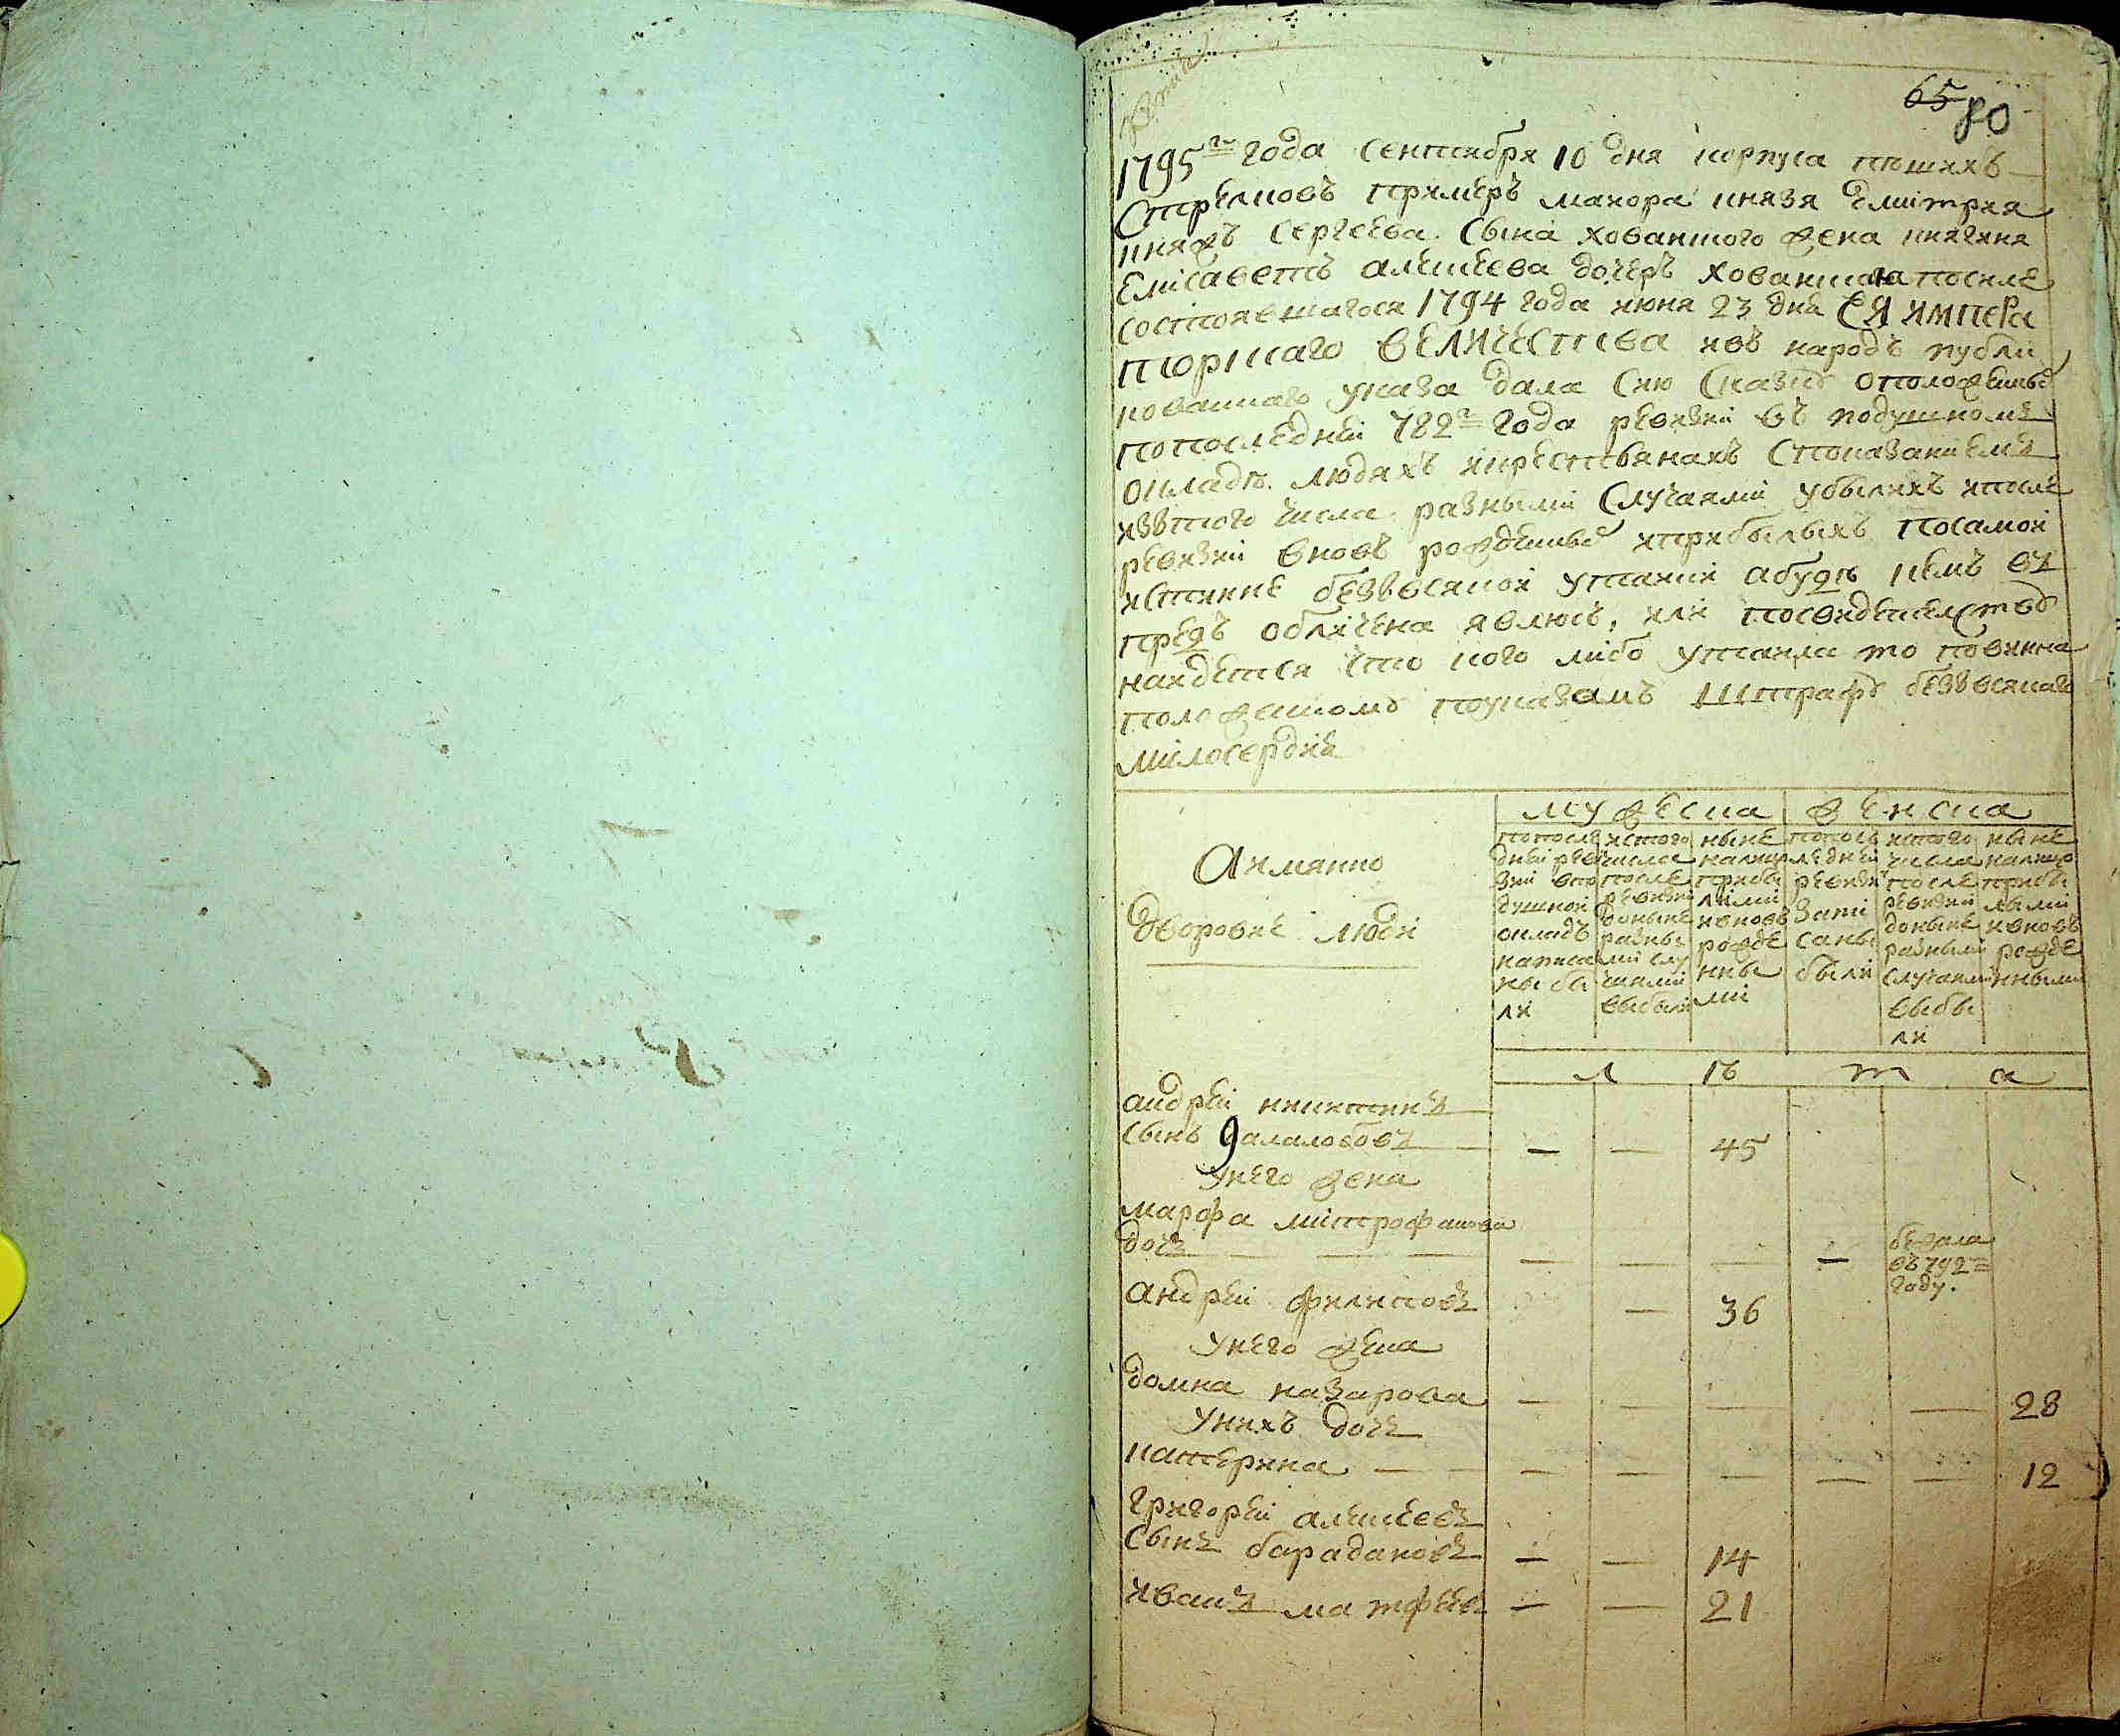 65 80
1795го года сентября 10 дня корпуса пѣшихъ
стрелковъ примеръ маиора князя дмитрия
князь сергеева сына хованского жена княгиня
елисаветъ алексеева дочеръ хованская посиле
состоявшагося 1794 года июня 23 дня ЕЯ ИМПЕРА
торскаго величества ивъ народъ публи
кованнаго указа дала сию скаску оположенныхъ
попоследней 782го года ревизии въ подушномъ
окладѣ людяхъ икрестьянахъ споказаниемъ
изътого числа разными случаями убылыхъ ипосле
ревизии вновь рожденныхъ иприбылыхъ посамой
истинне безъвсякой утайки абудѣ кемъ въ
предь обличена явлюсь, или посвидетелству
найдется что кого либо утаила то повинна
положенному поуказамъ штрафу безъвсякаго
милосердия
Аимянно
дворовые люди
мужеска женска
попосле дней реви зии впо душной окладъ написа ны бы ли
истого числа после ревизии доныне разны ми слу чаями выбыли
ныне налицо сприбы лыми ивновь рожде нны ми
попосле дней ревизии запи саны были
истого числа после ревизии доныне разными случаями выбы ли
ныне налицо сприбы лыми ивновь рожде нными
л ѣ т а
андрей никитинъ
сынъ далаловъ — — 45
унего жена
марфа митрофанова
дочь — — — — бежала въ792м году.
андрей филиповъ — 36
унего жена
домна назарова — — — — 28
унихъ дочь
катерина — — — — — 12
григорей алексеевъ
сынъ барадановъ — — 14
иванъ матфеевъ — — 21